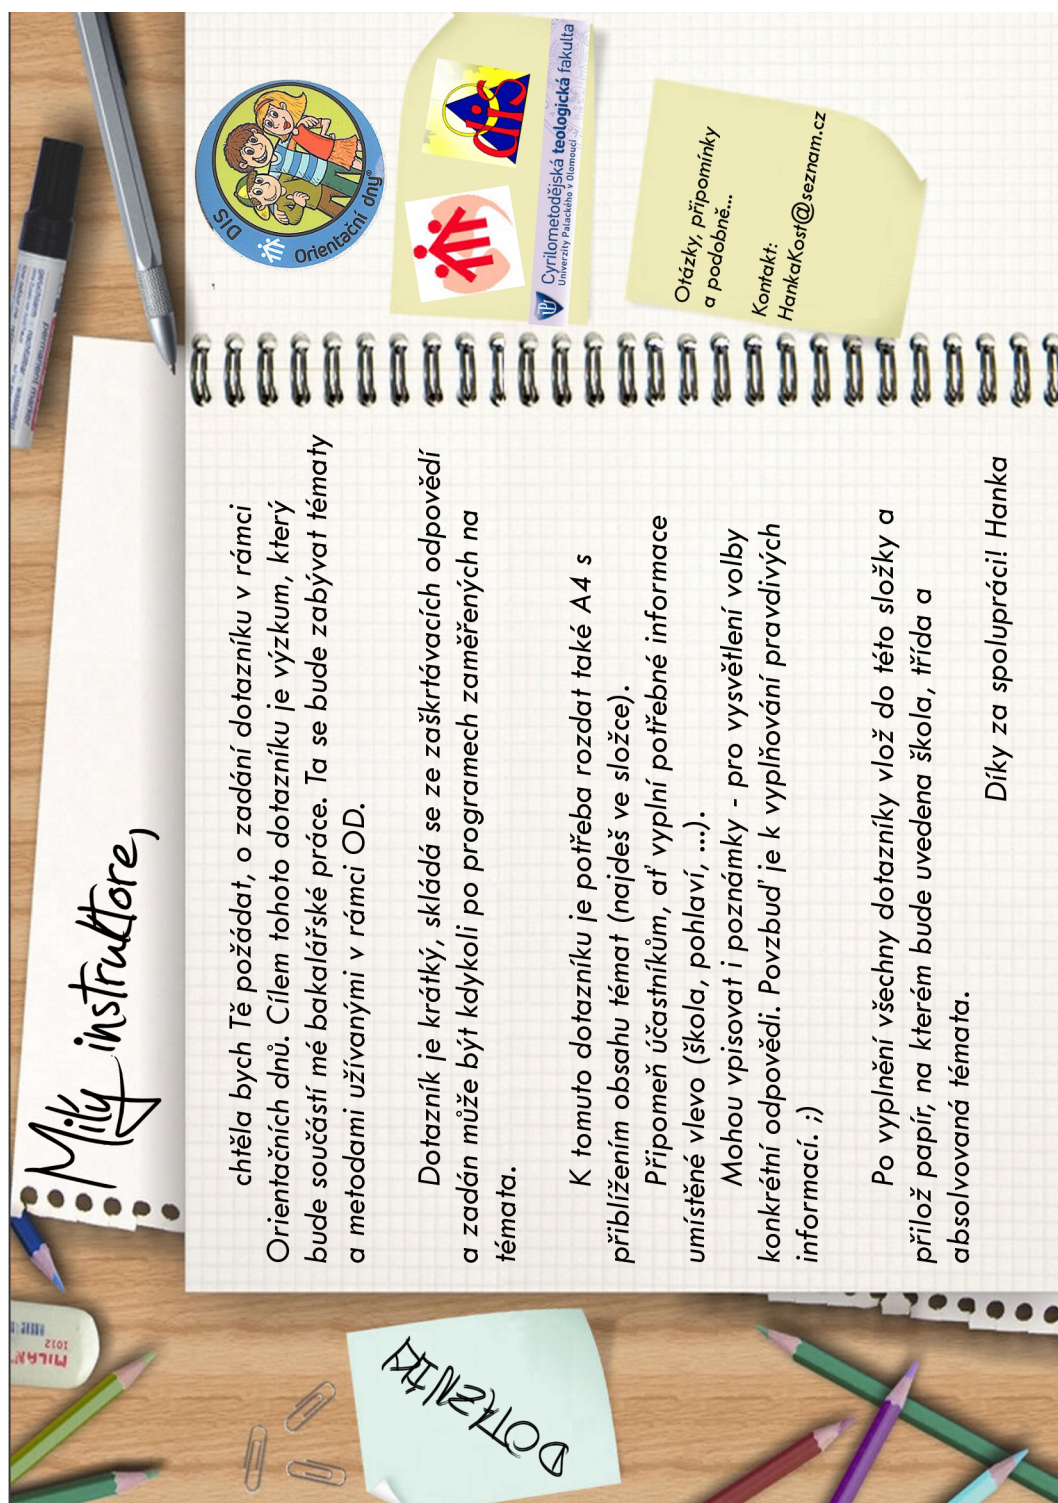 Milý instruktore,
chtěla bych Tě požádat, o zadání dotazníku v rámci
Orientačních dnů. Cílem tohoto dotazníku je výzkum, který
bude součástí mé bakalářské práce. Ta se bude zabývat tématy
a metodami užívanými v rámci OD.
Dotazník je krátký, skládá se ze zaškrtávacích odpovědí
a zadán může být kdykoli po programech zaměřených na
témata.
K tomuto dotazníku je potřeba rozdat také A4 s
přiblížením obsahu témat (najdeš ve složce).
Připomeň účastníkům, ať vyplní potřebné informace
umístěné vlevo (škola, pohlaví, ...).
Mohou vpisovat i poznámky - pro vysvětlení volby
konkrétní odpovědi. Povzbuď je k vyplňování pravdivých
informací. ;)
Po vyplnění všechny dotazníky vlož do této složky a
přilož papír, na kterém bude uvedena škola, třída a
absolvovaná témata.
Díky za spolupráci! Hanka
DIS
Orientační dny®
Cyrilometodějská teologická fakulta
Univerzity Palackého v Olomouci
Otázky, připomínky
a podobně...
Kontakt:
HankaKost@seznam.cz
DOTAZNÍKY
MILAN
1012
permanent marker